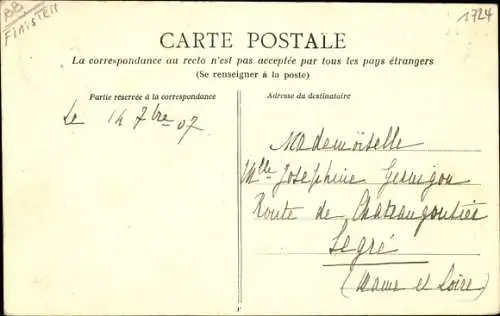 BB
FINISTER
1724
CARTE POSTALE
La correspondance au recto n'est pas acceptée par tous les pays étrangers
(Se renseigner à la poste)
Partie reservée à la correspondance
Adresse du destinataire
Le 14 7bre 07
Mademoiselle
Mlle Josephine
Route de Chateaugontier
Segré
(Maine et Loire)